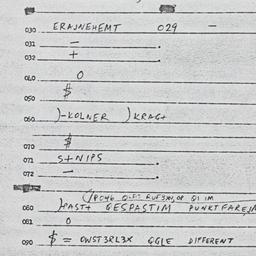 030 ERAJNEHEMT 029 -
031 =
032 +
040 0
050 $
060 )-KOLNER )KRAG+
070 $
071 S+NIPS
072 -
080 )PAST+ GESPASTIM PUNKTFAREJN
081 0
090 $ = OWST3RL3X GGLE DIFFERENT